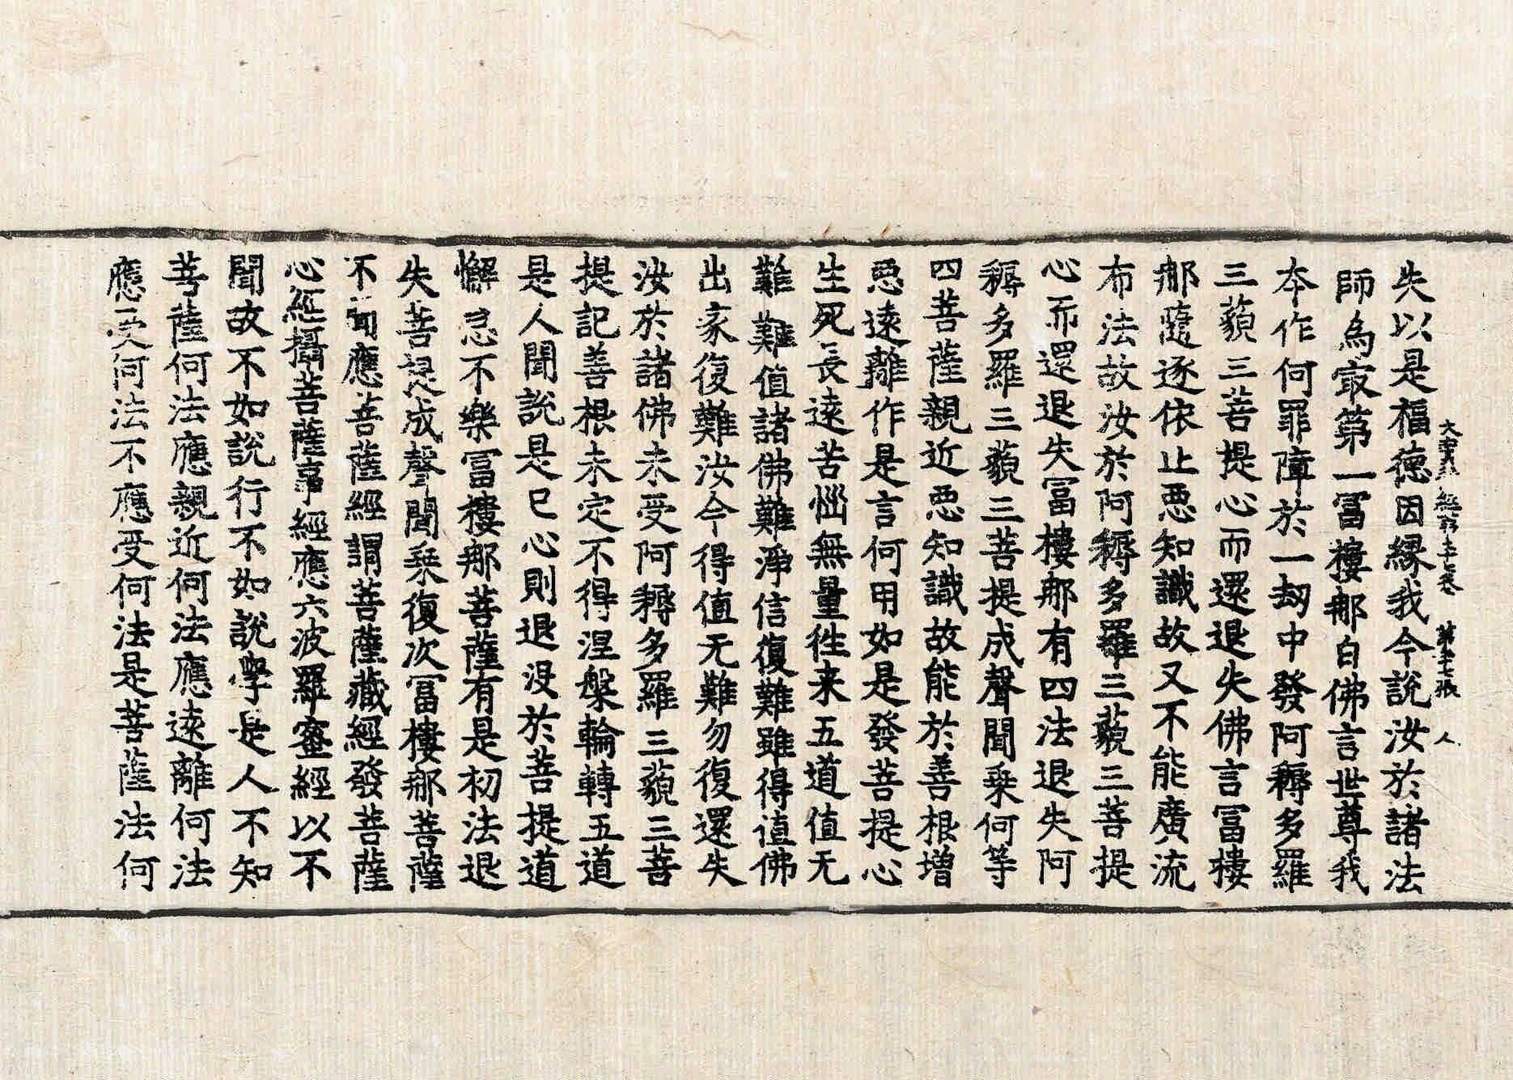 大寶積經第七十七卷 張 人
失以是福德因緣我今說汝於諸法
師為㝡第一冨樓那白佛言世尊我
本作何罪障於一劫中發阿耨多羅
三藐三菩提心而還退失佛言冨樓
那隨逐依止惡知識故又不能廣流
布法故汝於阿耨多羅三藐三菩提
心而還退失冨樓那有四法退失阿
耨多羅三藐三菩提成聲聞乗何等
四菩薩親近惡知識故能於善根增
惡遠離作是言何用如是發菩提心
生死長遠苦惱無量往来五道值无
難難值諸佛難淨信復難雖得值佛
出家復難汝今得值无難勿復還失
汝於諸佛未受阿耨多羅三藐三菩
提記善根未定不得涅槃輪轉五道
是人聞說是已心則退没於菩提道
懈怠不樂冨樓那菩薩有是初法退
失菩提成聲聞乗復次冨樓那菩薩
不聞應菩薩經謂菩薩藏經發菩薩
心經攝菩薩事經應六波羅蜜經以不
聞故不如說行不如說學是人不知
菩薩何法應親近何法應遠離何法
應受何法不應受何法是菩薩法何